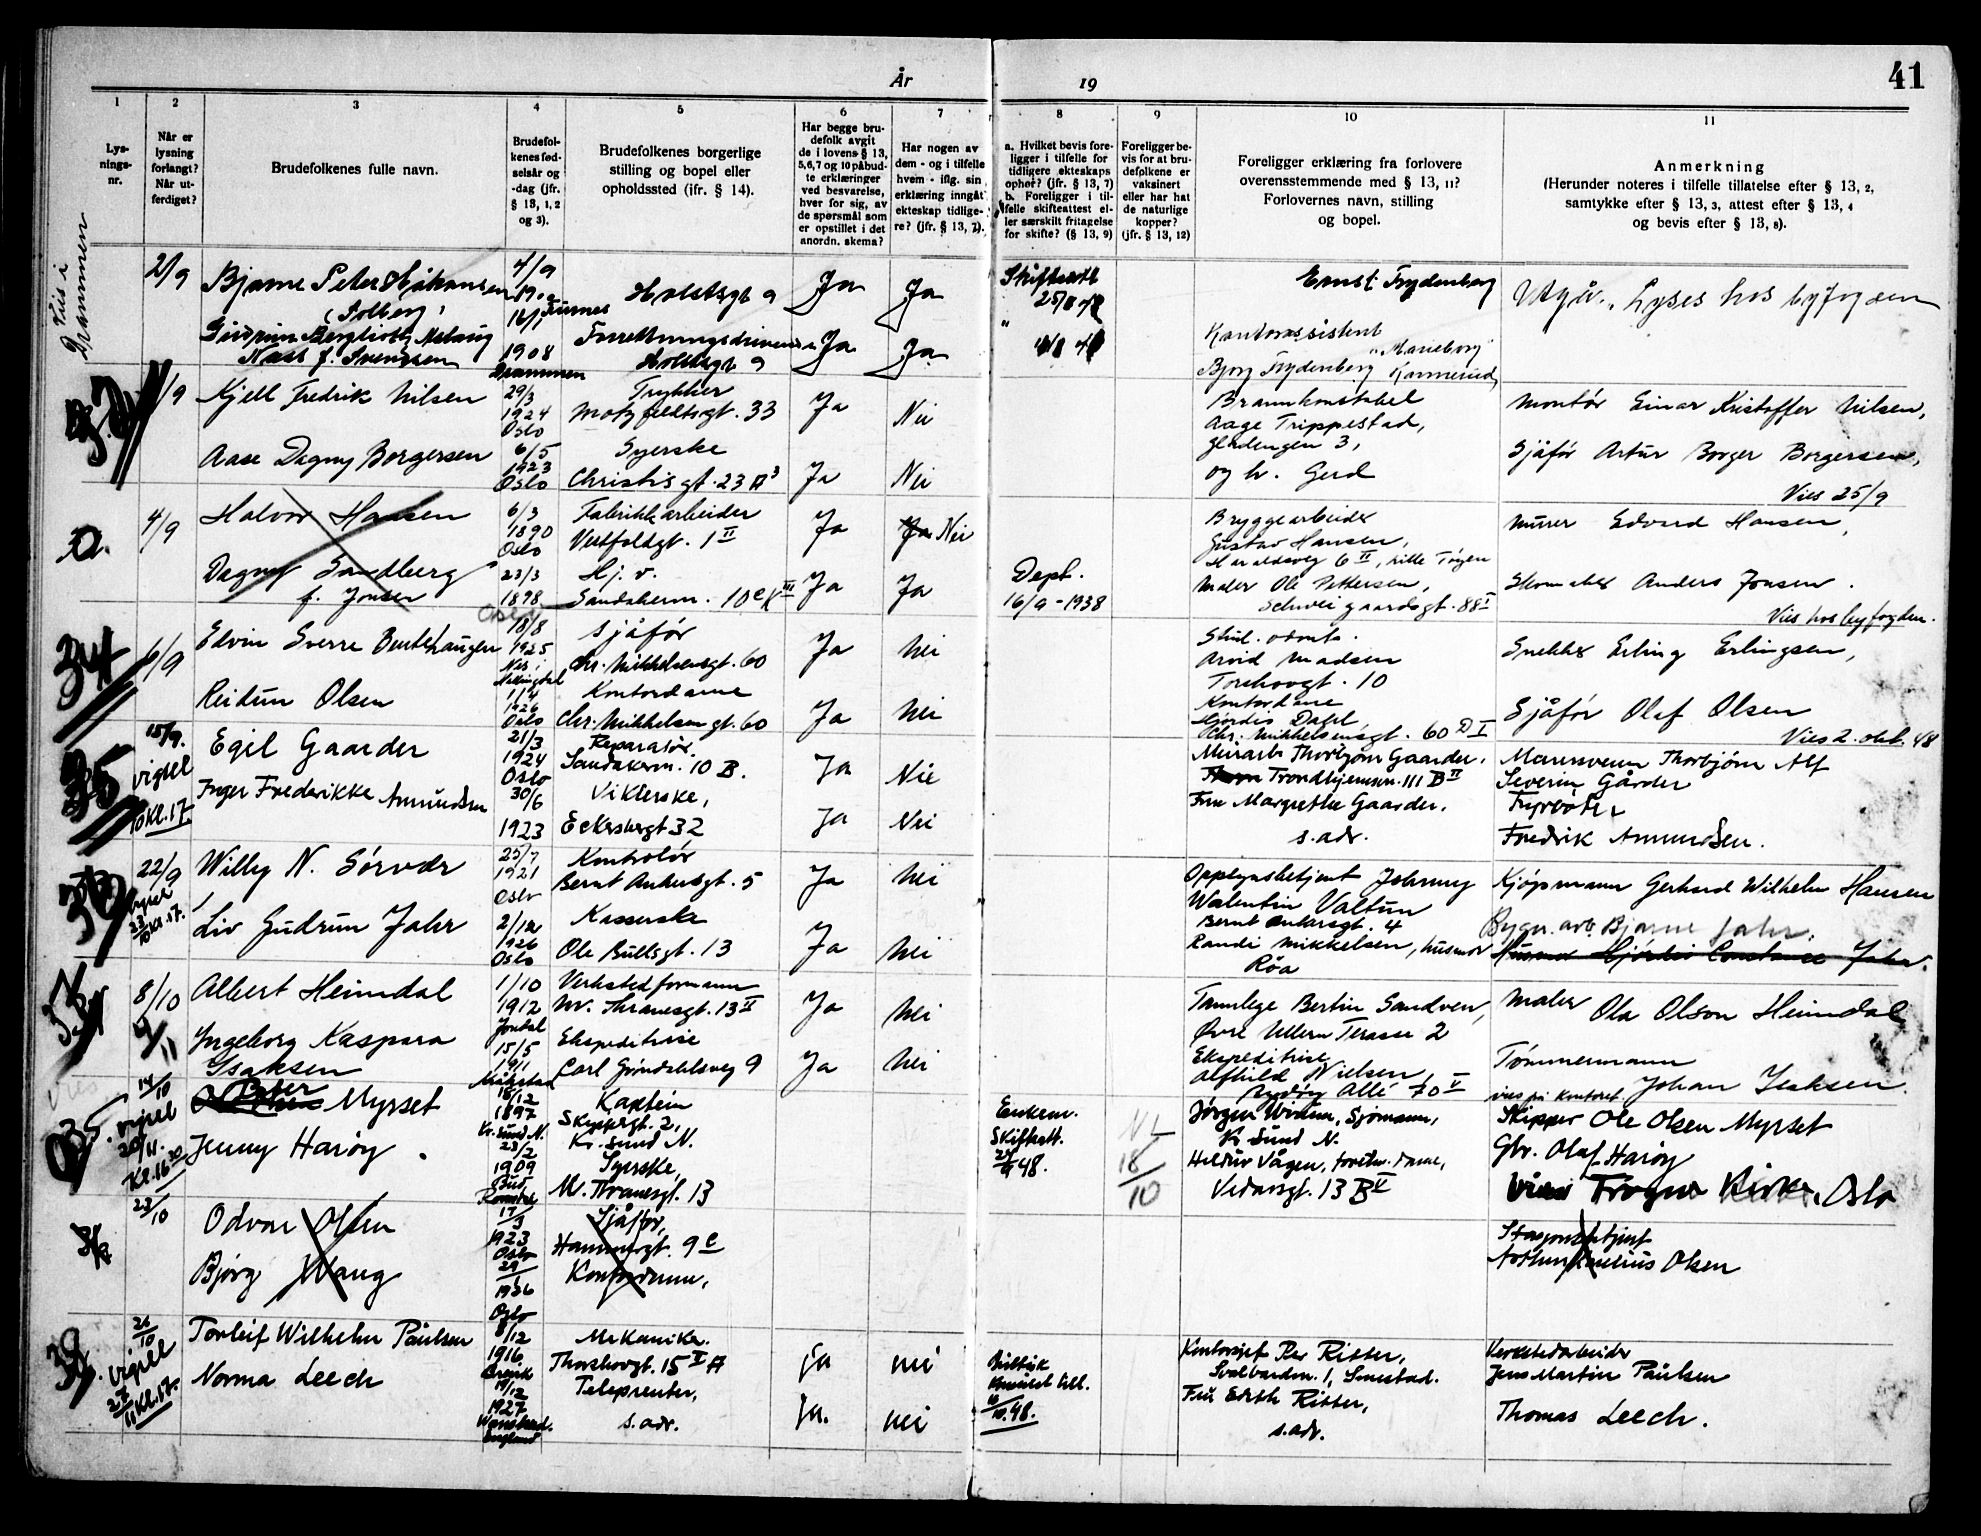 År 19
41
1 2 3 4 5 6 7 8 9 10 11
Lys-
nings-
nr.
Når er
lysning
forlangt?
Når ut-
ferdiget?
Brudefolkenes fulle navn.
Brudefol-
kenes fød-
selsår og
-dag (jfr.
§ 13, 1, 2
og 3).
Brudefolkenes borgerlige
stilling og bopel eller
opholdssted (ifr. § 14).
Har begge bru-
defolk avgit
de i lovens § 13,
5,6,7 og 10 påbud-
te erklæringer
ved besvarelse,
hver for sig, av
de spørsmål som
er opstillet i det
anordn. skema?
Har nogen av
dem - og i tilfelle
hvem - iflg. sin
erklæring inngåt
ekteskap tidlige-
re? (jfr. § 13, 7).
a. Hvilket bevis fore-
ligger i tilfelle for
tidligere ekteskaps
ophør? (jfr. § 13, 7)
b. Foreligger i til-
felle skifteattest el-
ler særskilt fritagelse
for skifte? (§ 13, 9)
Foreligger be-
vis for at bru-
defolkene er
vaksinert
eller har hat
de naturlige
kopper?
(jfr. § 13, 12)
Foreligger erklæring fra forlovere
overensstemmende med § 13, 11?
Forlovernes navn, stilling
og bopel.
Anmerkning
(Herunder noteres i tilfelle tillatelse efter § 13, 2,
samtykke efter § 13, 3, attest efter § 13, 4
og bevis efter § 13, 8).
Vies i
Drammen
2/9
Bjarne Peter Håkonsen
(Solberg)
4/9
Furnes
Holstsgt 9
Ja
Ja
Skifteatt
Ernst Frydenberg
Utgår. Lyses hos byfogden
Gudrun Bergliot Aslaug
Næss f. Svendsen
16/1
1908
Drammen
Forretningsdrivende
Holstsgt 9
Ja
Ja
Kontorassistent
Bjorg Frydenberg
"Marieborg"
/9
Kjell Fredrik Nilsen
29/3
1924
Oslo
Trykker
Motzfeldtsgt. 33
Ja
Nei
Brannkonstabel
Aage Trippestad,
Gladengen 3,
Montør Einar Kristoffer Nilsen,
Aase Dagny Borgersen
6/5
1923
Oslo
Syerske
Christiesgt. 23 A³
Ja
Nei
og hr. Gerd
Sjåfør Artur Borger Borgersen,
Vies 25/9
0.
4/9
Halvor Hansen
6/3
1890
Oslo
Fabrikkarbeider
Vestfoldgt. 1 II
Ja
Ja Nei
Bryggearbeider
Gustav Hansen,
Haraldsvg 6 II, Lille Tøyen
Murer Edvard Hansen,
Dagny Sandberg
f. Jonsen
23/3
1898
Oslo
Hj. v.
Sandakervn. 10 c III
Ja
Ja
Dept.
16/9-1938
Maler Ole Pettersen,
Schweigaardsgt. 88 I
Skomaker Anders Jonsen.
Vies hos byfogden.
34
6/9
Edvin Sverre Bentehaugen
18/8
1925
Nes i
Hallingdal
Sjåfør
Chr. Mikkelsensgt. 60
Ja
Nei
Stud. odont.
Arvid Madsen
Torshovgt. 10
Snekker Erling Erlingsen,
Reidun Olsen
1/4
1926
Oslo
Kontordame
Chr. Mikkelsensgt. 60
Ja
Nei
Kontordame
Hjördis Dahl,
Chr. Mikkelsensgt. 60 D I
Sjåfør Olaf Olsen
Vies 2. okt. 48
35
15/9.
vigsel
10 kl. 17.
Egil Gaarder
21/3
1924
Oslo
Reparatør.
Sandakervn. 10 B.
Ja
Nei
Murarb. Thorbjørn Gaarder.
Trondhjemsvn. 111 B II
Murersvenn Thorbjörn Alf
Severin Gårder
Inger Frederikke Amundsen
30/6
1923
Viklerske,
Eckersbergt 32
Ja
Nei
Fru Margrethe Gaarder.
s. adr.
Fyrbøter
Fredrik Amundsen.
36
22/9
Vigsel
23/10 kl. 17.
Willy N. Sörvdr
25/7
1921
Oslo
Kontrolör
Bernt Ankersgt. 5
Ja
Nei
Oppsynsbetjent Johnny
Walentin Valtun
Bernt Ankersgt. 4
Kjøpmann Gerhard Wilhelm Hansen
Liv Gudrun Jahr
2/12
1926
Oslo
Kasserske
Ole Bullsgt. 13
Ja
Nei
Randi Mikkelsen, husmor
Röa
Bygn. arb. Bjarne Jahr.
Husmor Hjördis Constance Jahr.
37
8/10
Albert Heimdal
1/10
1912
Jondal
Verkstedformann
M. Thranesgt. 13 II
Ja
Nei
Tannlege Bertin Sandven,
Övre Ullern Terasse 2
Maler Ola Olson Heimdal
Ingeborg Kaspara
Isaksen
15/5
1911
Ekspeditrise
Carl Gröndahlsveg 9
Ja
Nei
Ekspeditrise
Alfhild Nielsen
Bygdöy Allé 70 V
Tømmermann
Johan Isaksen.
vies på kontoret
14/10
vigsel
20/11.
Kl. 16 30
Peter Myrset
18/12
1897
Kr. Sund N.
Kaptein
Skippergt. 2,
Kr. Sund N.
Enkem.
Skifteatt.
48.
18/10
Jørgen Sjömann,
Kr. Sund N.
Skipper Ole Olsen Myrset
Jenny Harøy.
23/2
1909
Bud,
Romsdal
Syerske,
M. Thranesgt. 13
Heldur Vågen, forretn. dame,
Vedavsgt. 13 B V
Gbr. Olaf Harøy
Vies Frogner Kirke, Oslo
23/10
Odvar Olsen
17/3
1923
Oslo
Sjåfør,
Hammergt. 9 c
Stasjonsbetjent
Olsen
Bjørg Wang
29/1
1926
Oslo
Kontordame,
39.
26/10
vigsel
27/11 Kl. 17.
Torleif Wilhelm Paulsen
8/12
1916
Mekaniker.
Thorshovgt. 15 I A
Ja
Nei
Britisk
Konsulat till.
10.48.
Kontorsjef Per Ritter,
Svalbardvn. 1, Smestad.
Verkstedarbeider
Jens Martin Paulsen
Norma Leech
19/12
1927
Wanstead.
England
Teleprenter,
s. adr.
Ja.
Nei
Fru Edith Ritter,
s. adr.
Thomas Leech.